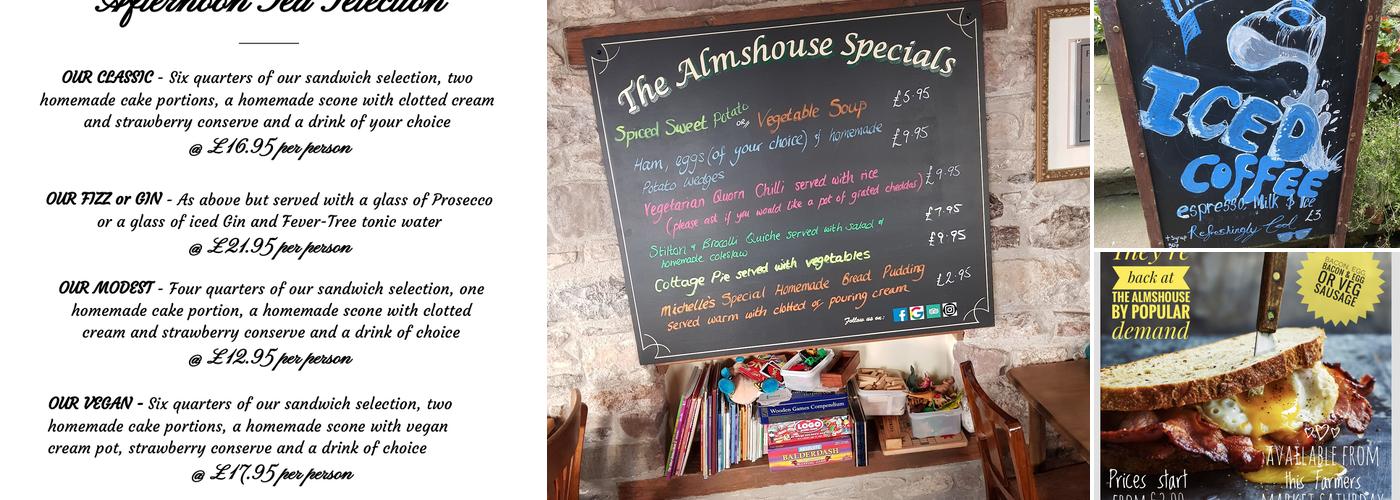 Afternoon Tea Selection
OUR CLASSIC - Six quarters of our sandwich selection, two
homemade cake portions, a homemade scone with clotted cream
and strawberry conserve and a drink of your choice
@ £16.95 per person
OUR FIZZ or GIN - As above but served with a glass of Prosecco
or a glass of iced Gin and Fever-Tree tonic water
@ £21.95 per person
OUR MODEST - Four quarters of our sandwich selection, one
homemade cake portion, a homemade scone with clotted
cream and strawberry conserve and a drink of choice
@ £12.95 per person
OUR VEGAN - Six quarters of our sandwich selection, two
homemade cake portions, a homemade scone with vegan
cream pot, strawberry conserve and a drink of choice
@ £17.95 per person
The Almshouse Specials
Spiced Sweet Potato or Vegetable Soup £5.95
Ham, eggs (of your choice) & homemade £9.95
Potato wedges
Vegetarian Quorn Chilli served with rice £9.95
(please ask if you would like a pot of grated cheddar)
Stilton & Brocolli Quiche served with salad & £7.95
homemade coleslaw
Cottage Pie served with vegetables £9.95
Michelle's Special Homemade Bread Pudding £2.95
served warm with clotted or pouring cream
Follow us on:
Wooden Games Compendium
LOGO
BALDERDASH
ICED
COFFEE
espresso, Milk & Ice
£3
+ Syrup
50p
Refreshingly Cool
They're
back at
THE ALMSHOUSE
BY POPULAR
demand
BACON, EGG
BACON & EGG
OR VEG
SAUSAGE
AVAILABLE FROM
this Farmers
MARKET SATURDAY
Prices start
FROM £3.00